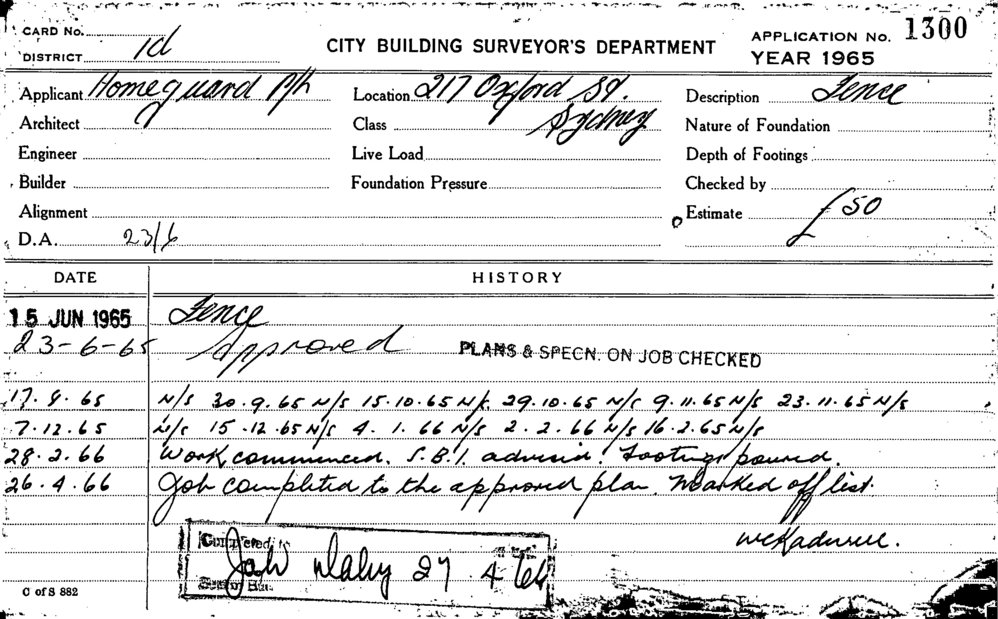 CARD No.
DISTRICT 1d
CITY BUILDING SURVEYOR'S DEPARTMENT
APPLICATION No. 1300
YEAR 1965
Applicant Homeguard P/L Location 217 Oxford St. Description Fence
Architect Class Sydney Nature of Foundation
Engineer Live Load Depth of Footings
Builder Foundation Pressure Checked by
Alignment Estimate £50
D.A. 23/6
DATE HISTORY
15 JUN 1965 Fence
23-6-65 Approved PLANS & SPECN. ON JOB CHECKED
17.9.65 N/S 30.9.65 N/S 15.10.65 N/S 29.10.65 N/S 9.11.65 N/S 23.11.65 N/S
7.12.65 N/S 15.12.65 N/S 4.1.66 N/S 2.2.66 N/S 16.2.65 N/S
28.2.66 Work commenced. S.B.I. advised. Footings poured.
26.4.66 Job completed to the approved plan. Marked off list.
Completed
27 4 66
C of S 882